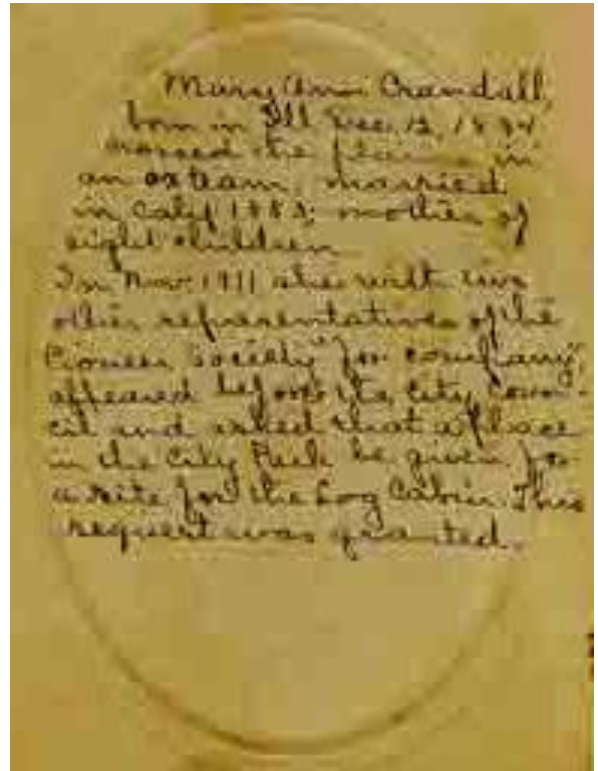 Mary Ann Crandall,
born in Ill Dec. 12, 18
crossed the plains in
an ox team, married
in Calif 1853; mother of
eight children
In Nov. 1911 she with two
other representatives of the
Pioneer Society "for company",
appeared before the City Coun-
cil and asked that a place
in the City Park be given for
a site for the Log Cabin. This
request was granted.